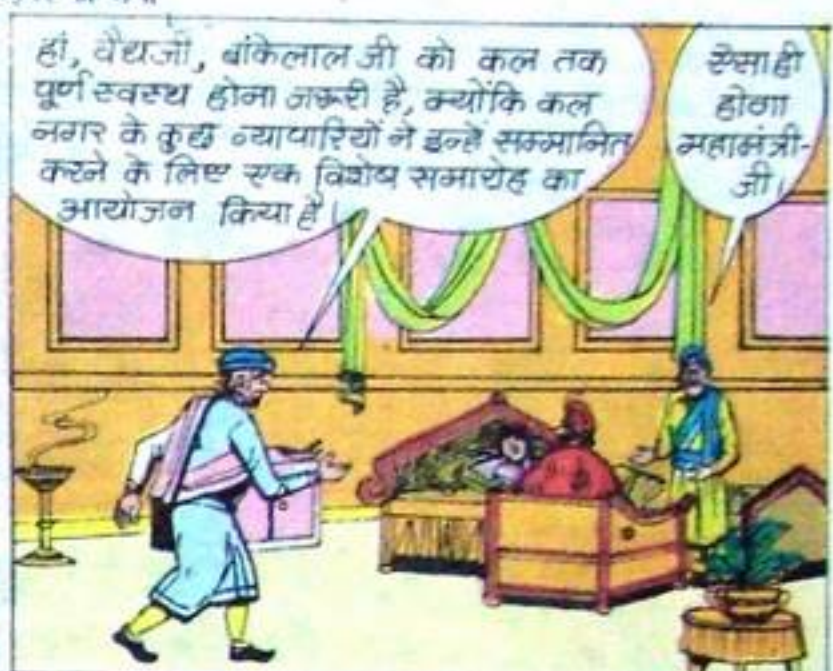 हां, वैद्यजी, बांकेलाल जी को कल तक
पूर्ण स्वस्थ होना जरूरी है, क्योंकि कल
नगर के कुछ व्यापारियों ने इन्हें सम्मानित
करने के लिए एक विशेष समारोह का
आयोजन किया है।
ऐसा ही
होगा
महामंत्री-
जी।